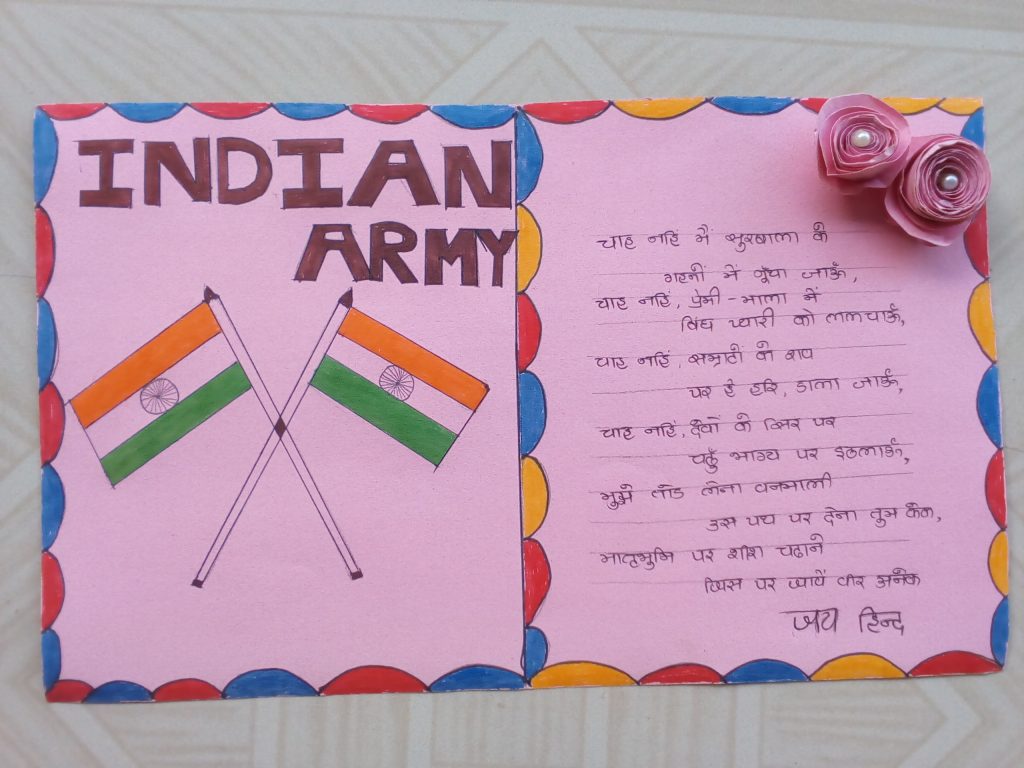 INDIAN
ARMY
चाह नहिं मैं सुरबाला के
गहनों में गूँथा जाऊँ,
चाह नहिं, प्रेमी-माला में
विंध प्यारी को ललचाऊँ,
चाह नहिं, सम्राटों के शव
पर हे हरि, डाला जाऊँ,
चाह नहिं, देवों के सिर पर
चढूँ भाग्य पर इठलाऊँ,
मुझे तोड लेना वनमाली
उस पथ पर देना तुम फेंक,
मातृभूमि पर शीश चढाने
जिस पर जायें वीर अनेक
जय हिन्द